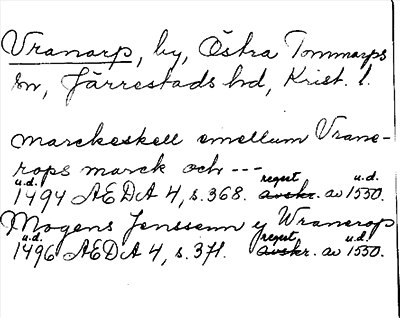 Vranarp, by, Östra Tommarps
sn, Järrestads hd, Krist. l.
marckeskell emellum Vrane-
rops marck och ---
u.d. regest u.d.
1494 AEDA 4, s. 368. avskr. av 1550.
Mogens Jenssenn y Wranerop
u.d. regest u.d.
1496 AEDA 4, s. 371. avskr. av 1550.